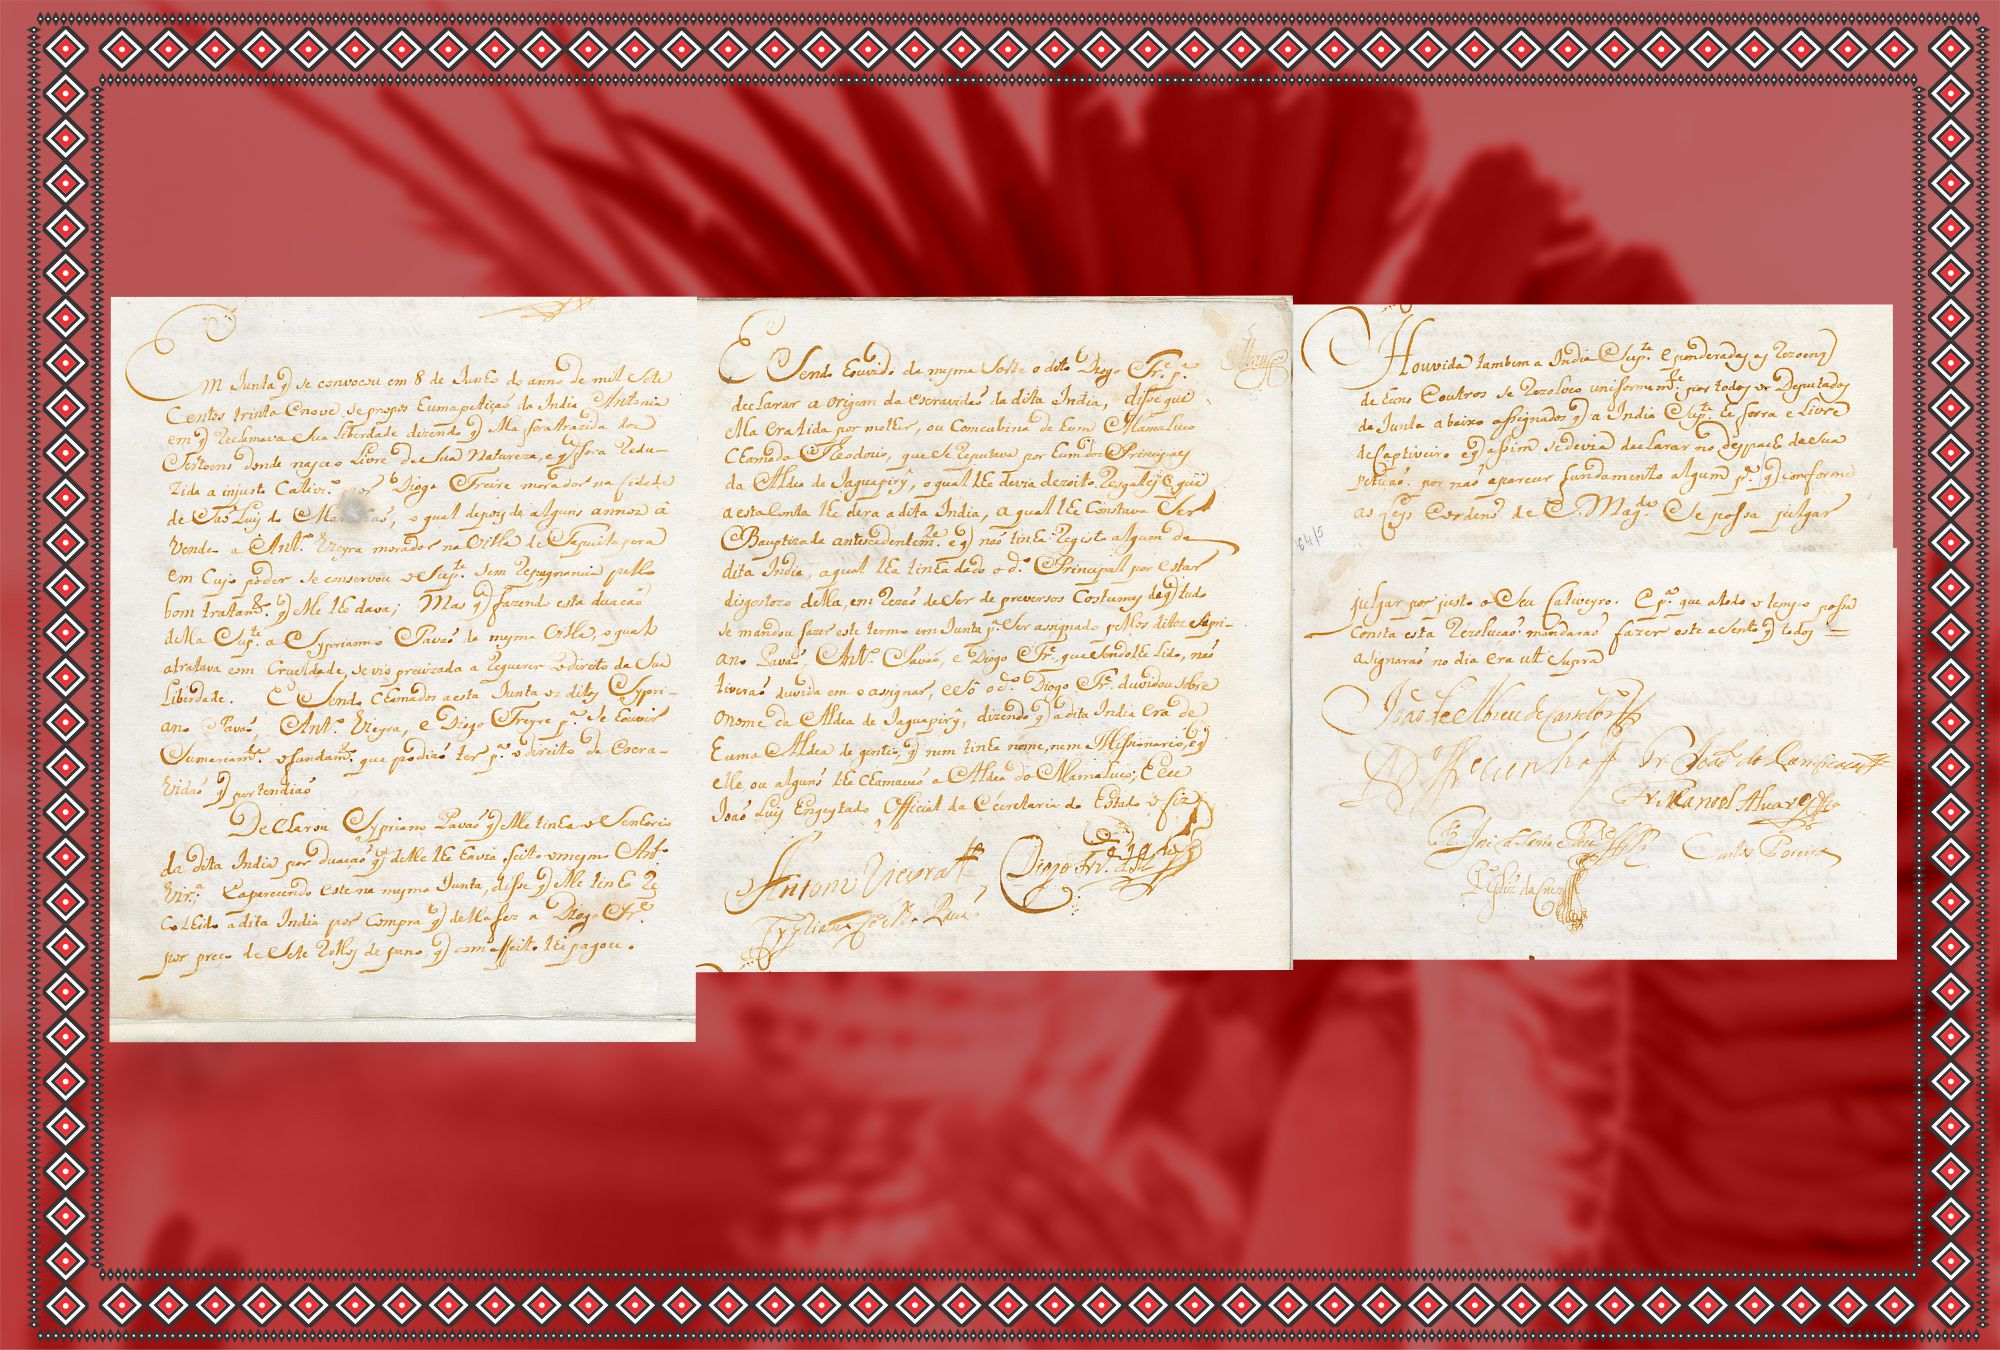 Em Junta q̃ se convocou em 8 de Junho do anno de mil Sete
Centos trinta e nove, se propos huma petiçaõ da India Antonia
em q̃ Reclamava Sua liberdade dizendo q̃ Ella fora trazida dos
Certoens donde nasceo livre de sua Natureza, e q̃ fora Redu-
zida a injusto Cativr.º por Diogo Freire morador na Cidade
de Saõ Luis do Maranhaõ, o qual depois de alguns annos a
Vendeo a Ant.º Vieyra morador na Villa de Tapuitapera
em Cujo poder se conservou a Sup.te sem Repugnancia pello
bom tratam.to q̃ Elle lhe dava; Mas q̃ fazendo esta duaçaõ
della Sup.te a Cypriano Pavaõ da mesma Villa, o qual
a tratava com Crueldade, se vio precizada a Requerer o direito da Sua
Liberdade. E Sendo Chamados a esta Junta os ditos Cypri-
ano Pavaõ, Ant.º Vieyra, e Diogo Freyre p.ª se houvir
Sumariam.te o fundam.to que podiaõ ter p.ª o direito da Escra-
vidaõ q̃ pertendiaõ
Declarou Cypriano Pavaõ q̃ Elle tinha o Senhorio
da dita India por duaçaõ q̃ della lhe havia feito o mesmo Ant.º
Vir.ª E aparecendo este na mesma Junta, disse q̃ Elle tinha Re
Colhido a dita India por compra q̃ della fez a Diogo Fr.e
por preço de Sete Rollos de pano, q̃ com effeito lhe pagou.
E Sendo houvido da mesma Sorte o dito Diogo Fr.e p.ª
declarar a origem da escravidaõ da dita India, disse que
Ella era tida por molher, ou Comcubina de hum Mamaluco
Chamado Theodorio, que se Reputava por hum dos Principaes
da Aldea de Jaguapirỹ, o qual lhe devia dezoito Resgates, e que
a esta Conta lhe dera a dita India, a qual lhe Constava Ser
Bauptizada antiscedentem.te e q̃ naõ tinha Registo algum da
dita India, a qual lha tinha dado o d.º Principal por estar
disgostozo della, em Rezaõ de Ser de preversos Costumes de q̃ tudo
se mandou fazer este termo em Junta p.ª Ser asignado pellos ditos Sipri-
ano Pavaõ, Ant.º Pavaõ, e Diogo Fr.e que sendolhe lido, naõ
tiveraõ duvida em o asignar, e Só o d.º Diogo Fr.e duvidou sobre
o nome da Aldea de Jaguapirỹ, dizendo q̃ a dita India era de
huma Aldea de gentio, q̃ nem tinha nome, nem Missionario, e q̃
elle, ou alguns lhe chamavaõ a Aldea do Mamaluco; E eu
Joaõ Luis Official da Cecretaria do Estado o fiz
Antonio Vieyra
Diogo Fr.e
Pavaõ
Houvida tambem a India Sup.te e ponderadas as Rezoens
de huns e outros se Rezolveo uniformem.te por todos os Deputados
da Junta abaixo assignados q̃ a India Sup.te he forra e livre
de Captiveiro e q̃ assim se devia declarar no despacho da Sua
petiçaõ. por naõ aparecer fundamento algum p.ª q̃ conforme
as Leys e ordens de S. Mag.de Se possa julgar
64/5
julgar por justo o Seu Cativeyro. E p.ª que a todo o tempo possa
Consta esta Rezoluçaõ. mandaraõ fazer este asento q̃ todos
asignaraõ no dia era ut Supra
Joaõ de Abreu de Castelbr.co
Fr. Manoel Alvares
Carlos Pereira